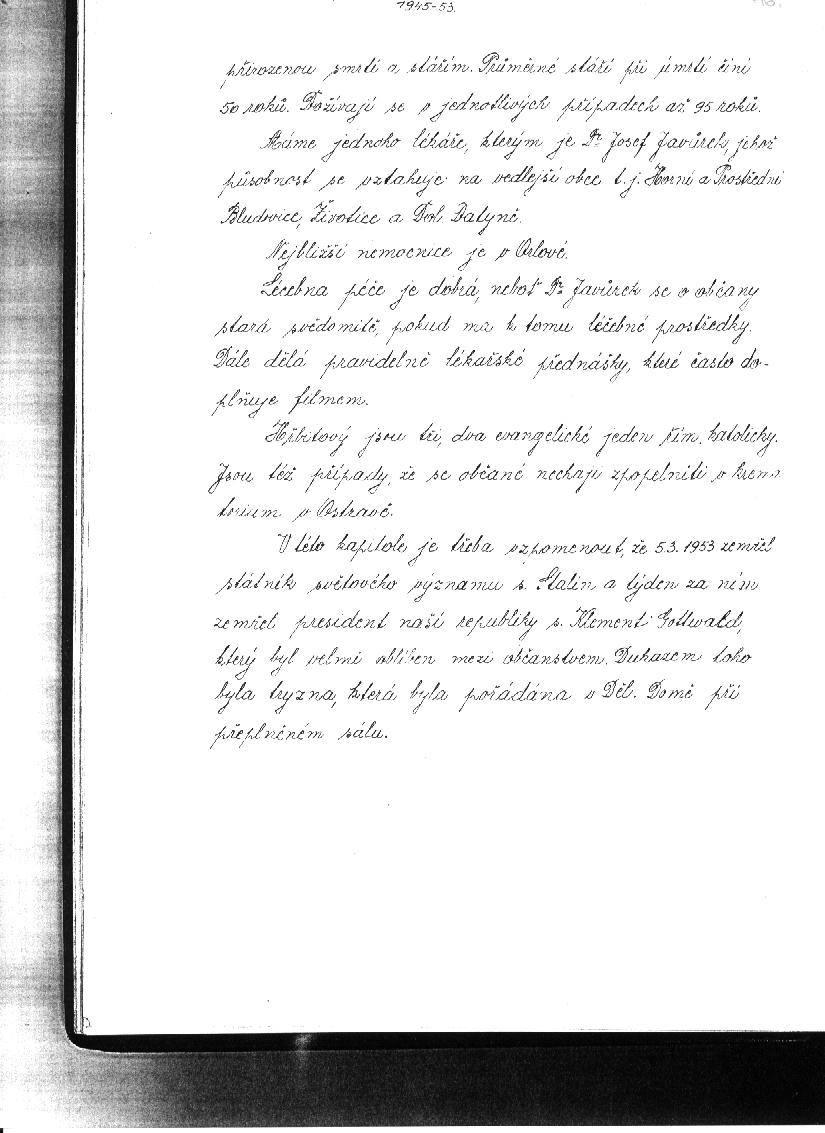 1945-53.
přirozenou smrtí a stářím. Průměrné stáří při úmrtí činí
50 roků. Dožívají se v jednotlivých případech až 95 roků.
Máme jednoho lékáře, kterým je Dr Josef Javůrek, jehož
působnost se vztahuje na vedlejší obce t.j. Horní a Prostřední
Bludovice, Životice a Dol. Datyně.
Nejbližší nemocnice je v Orlové.
Léčebna péče je dobrá, neboť Dr Javůrek se o občany
stará svědomitě, pokud ma k tomu léčebné prostředky.
Dále dělá pravidelně lékařské přednášky, které často do-
plňuje filmem.
Hřbitový jsou tři, dva evangelické jeden řím. katolický.
Jsou též případy, že se občané nechají zpopelniti v krema
torium v Ostravě.
V této kapitole je třeba vzpomenout, že 5.3. 1953 zemřel
státník světového významu s. Stalin a týden za ním
zemřel president naší republiky s. Klement Gottwald,
který byl velmi oblíben mezi občanstvem. Dukazem toho
byla tryzna, která byla pořádána v Děl. Domě při
přeplněném sálu.